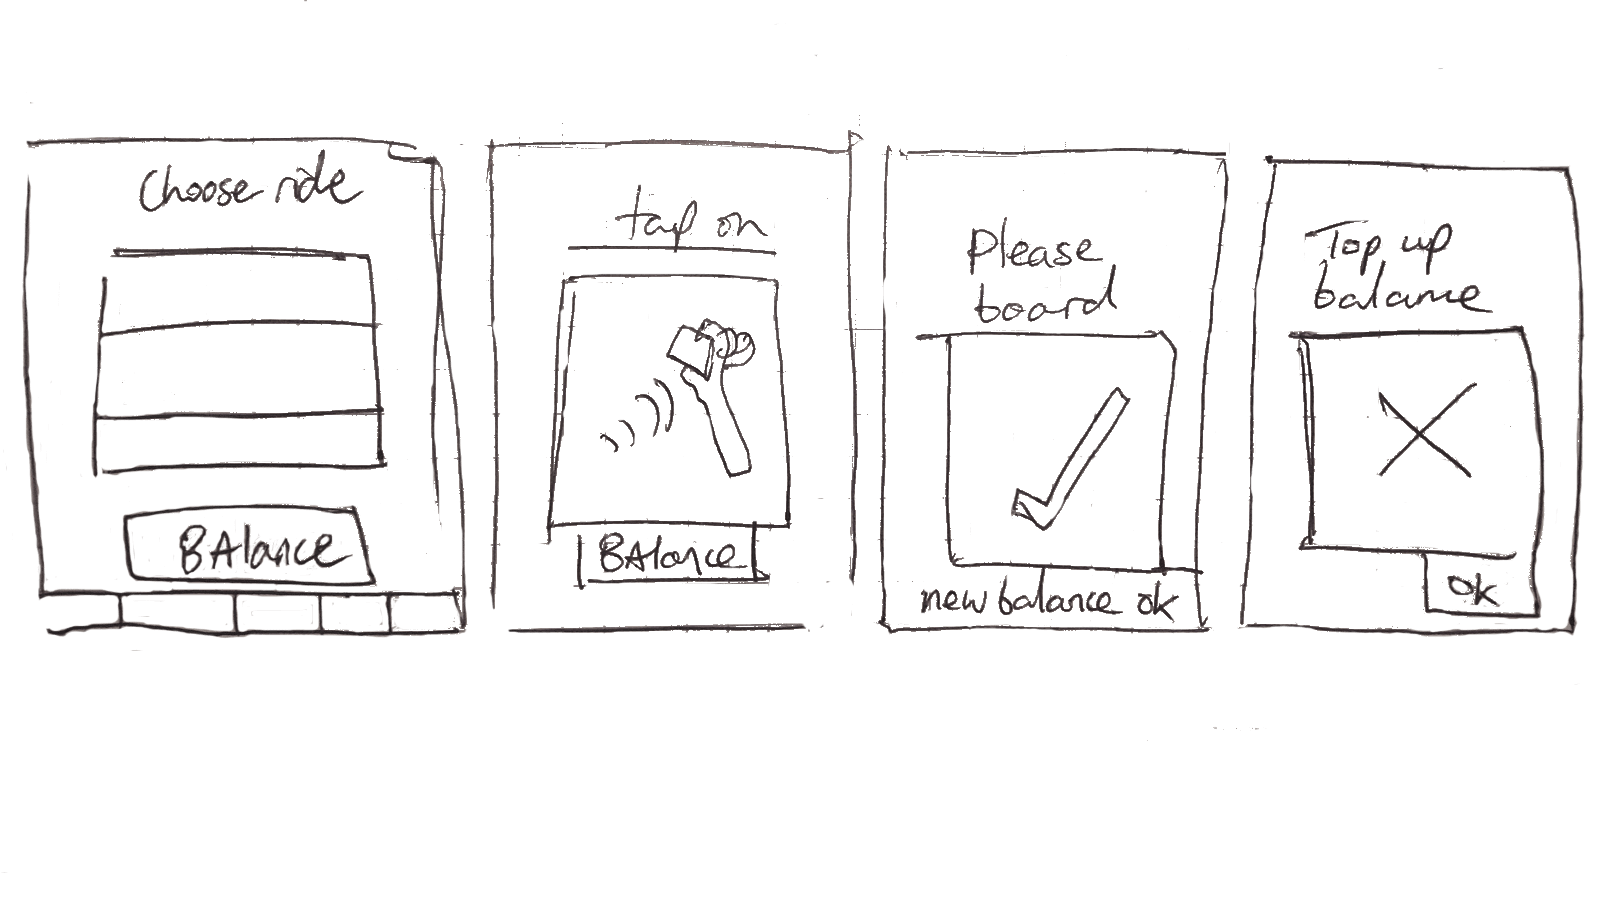 Choose ride
BAlance
tap on
BAlance
Please
board
new balance ok
Top up
balance
ok